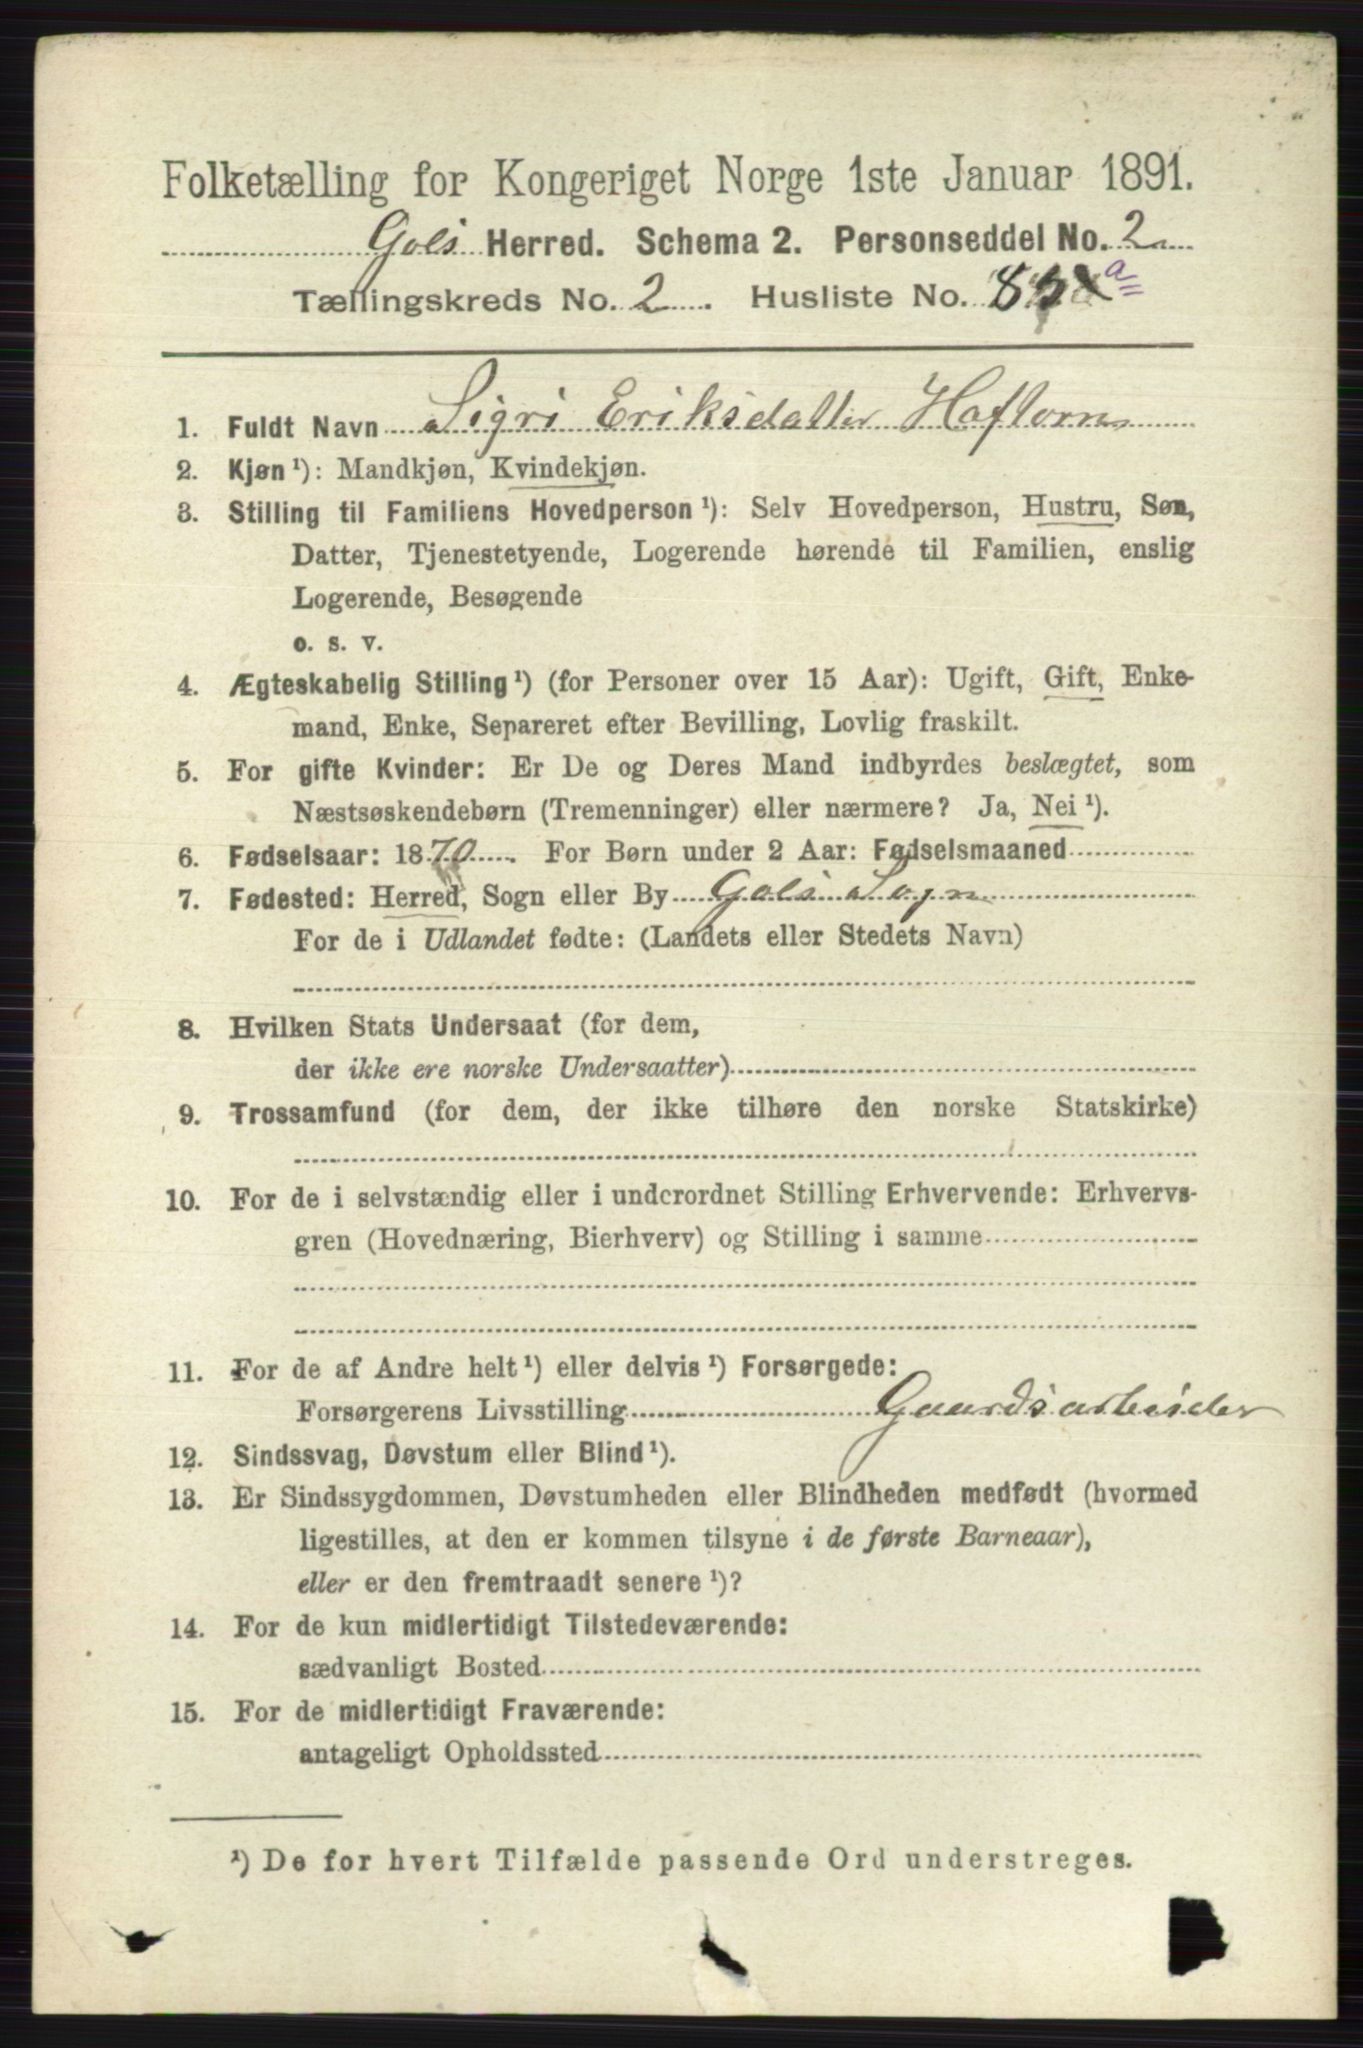 Folketælling for Kongeriget Norge 1ste Januar 1891.
Gols Herred. Schema 2. Personseddel No. 2
Tællingskreds No. 2. Husliste No.
1. Fuldt Navn Sigri Eriksdatter Haftorn
2. Kjøn ¹): Mandkjøn, Kvindekjøn.
3. Stilling til Familiens Hovedperson ¹): Selv Hovedperson, Hustru, Søn,
Datter, Tjenestetyende, Logerende hørende til Familien, enslig
Logerende, Besøgende
o. s. v.
4. Ægteskabelig Stilling ¹) (for Personer over 15 Aar): Ugift, Gift, Enke-
mand, Enke, Separeret efter Bevilling, Lovlig fraskilt.
5. For gifte Kvinder: Er De og Deres Mand indbyrdes beslægtet, som
Næstsøskendebørn (Tremenninger) eller nærmere? Ja, Nei ¹).
6. Fødselsaar: 1870. For Børn under 2 Aar: Fødselsmaaned
7. Fødested: Herred, Sogn eller By Gols Sogn
For de i Udlandet fødte: (Landets eller Stedets Navn)
8. Hvilken Stats Undersaat (for dem,
der ikke ere norske Undersaatter)
9. Trossamfund (for dem, der ikke tilhøre den norske Statskirke)
10. For de i selvstændig eller i underordnet Stilling Erhvervende: Erhvervs-
gren (Hovednæring, Bierhverv) og Stilling i samme
11. For de af Andre helt ¹) eller delvis ¹) Forsørgede:
Forsørgerens Livsstilling Gaardsarbeider
12. Sindssvag, Døvstum eller Blind ¹).
13. Er Sindssygdommen, Døvstumheden eller Blindheden medfødt (hvormed
ligestilles, at den er kommen tilsyne i de første Barneaar),
eller er den fremtraadt senere ¹)?
14. For de kun midlertidigt Tilstedeværende:
sædvanligt Bosted
15. For de midlertidigt Fraværende:
antageligt Opholdssted
¹) De for hvert Tilfælde passende Ord understreges.